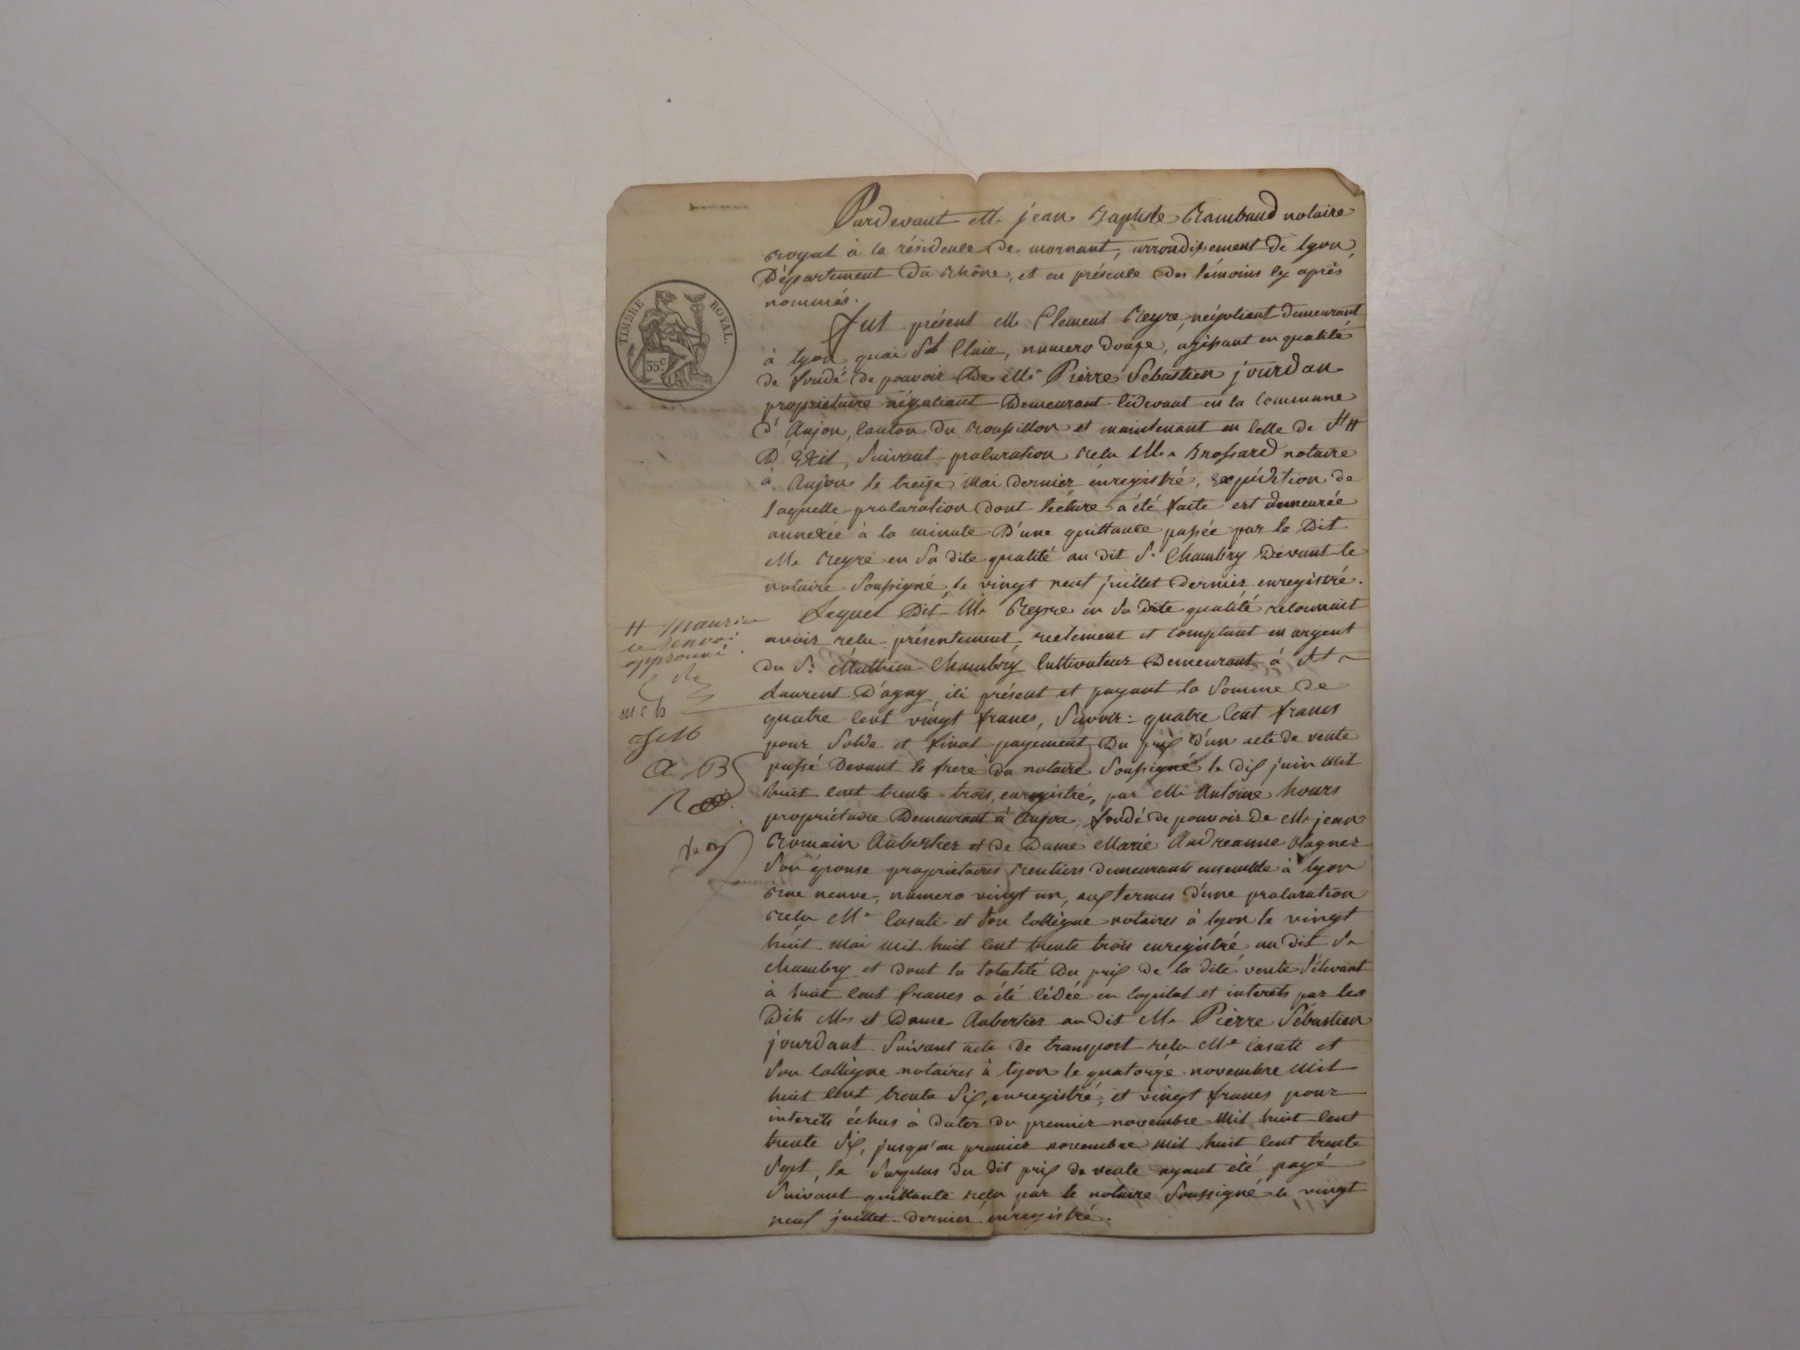 Pardevant Me jean Baptiste Rambaud notaire
royal à la résidence de mornant, arrondissement de lyon,
Département du rhône, et en présence des témoins cy après
nommés.
TIMBRE ROYAL.
35c
fut présent Mr Clément Reyre, négociant demeurant
à lyon quai St Clair, numero douze, agissant en qualité
de fondé de pouvoir de Mr Pierre Sébastien jourdan
propriétaire négociant Demeurant cidevant en la commune
d'Anjou, canton du roussillon et maintenant en celle de St #
D'Exil, suivant procuration reçu Me Brossard notaire
à Anjou le treize mai dernier enregistré, expédition de
laquelle procuration dont lécture a été faite est demeurée
annexée à la minute D'une quittance passée par le Dit
Mr Reyre en sa dite qualité au dit Sr Chambry Devant le
notaire soussigné, le vingt neuf juillet dernier enregistré.
Lequel Dit Mr Reyre en sa dite qualité reconnait
avoir reçu présentement, reelement et comptant en argent
du Sr Mathieu Chambry Cultivateur Demeurant à St
Laurent D'agny ici présent et payant la Somme de
quatre cent vingt francs, savoir: quatre cent francs
pour solde et final payement Du prix d'un acte de vente
passé Devant le frere du notaire soussigné le dix juin mil
huit cent trente trois, enregistré, par Mr Antoine hours
propriétaire Demeurant à Anjou, fondé de pouvoir de Mr jean
Romain Aubertier et de Dame Marie Andreanne Ragner
Son épouse propriétaires rentiers demeurants ensemble à lyon
rue neuve, numero vingt un, aux termes d'une procuration
reçu Me Casati et son collègue notaires à lyon le vingt
huit mai mil huit cent trente trois enregistré au dit Sr
Chambry et dont la totalité Du prix de la dite vente s'élevant
à huit cent francs a été cédée en capital et intérêts par les
Dits Mr et Dame Aubertier au dit Mr Pierre Sébastien
jourdant suivant acte de transport reçu Me Casati et
son collègue notaires à lyon le quatorze novembre mil
huit cent trente six, enregistré, et vingt francs pour
intérêts échus à dater du premier novembre mil huit cent
trente six, jusqu'au premier novembre mil huit cent trente
sept, le surplus du dit prix de vente ayant été payé
suivant quittance reçu par le notaire soussigné le vingt
neuf juillet dernier enregistré.
# Maurice
ce renvoi
approuvé.
M c b
A B